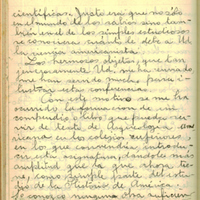 científicos. Justo era que no sólo
el mundo de los sabios sino tam-
bién el de los simples estudiosos
reconociera cuánto de debe a Ud
la arqueología americanista.
Los hermosos objetos, que tan
generosamente Ud. me ha enviado
me han servido mucho para i-
lustrar esta conferencia.
Con este motivo se me ha
ocurrido la formación de un
compendio o libro que pueda ser-
vir de texto de Arqueología ame-
ricana en los colegios superiores,
en lo que convendría intro-
ducir esta asignatura, dándole más
amplitud que la que ahora tie-
ne, como simple parte del estu-
dio de la Historia de América.
No conozco ninguna obra